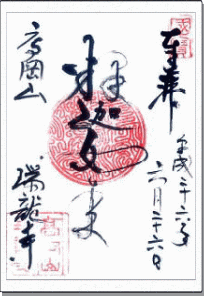 奉拝
平成二十六年
六月二十六日
釈迦文
高岡山
瑞龍寺